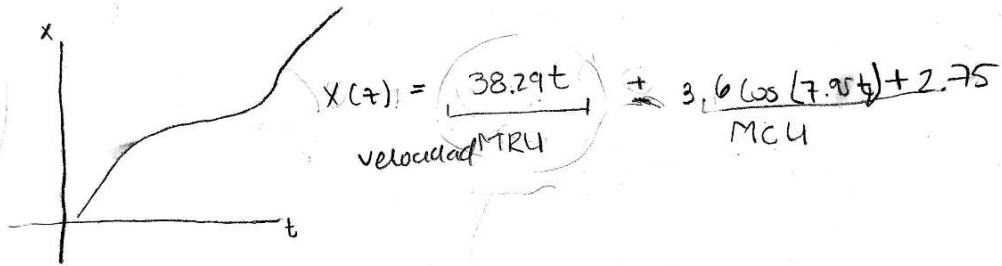 x
x(t) = 38.29t + 3.6 cos(7.95t) + 2.75
velocidad MRU
MCU
t